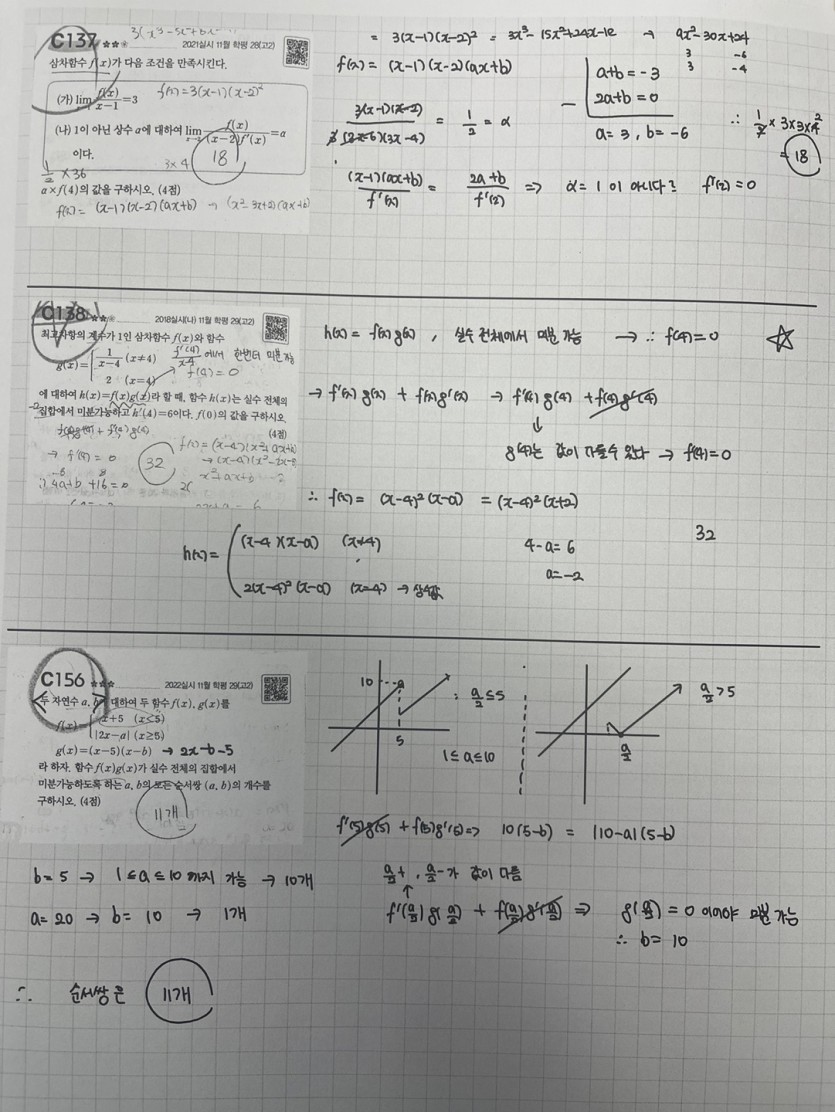 3(x³-5x²+8x-
C137 ★★☆ 2021실시 11월 학평 28(고2)
삼차함수 f(x)가 다음 조건을 만족시킨다.
(가) lim f(x)/(x-1)=3 f(x)=3(x-1)(x-2)²
(나) 1이 아닌 상수 α에 대하여 lim f(x)/((x-2)f'(x))=α
이다.
18
3×4
1/2 ×36
α×f(4)의 값을 구하시오. (4점)
f(x)= (x-1)(x-2)(ax+b) → (x²-3x+2)(ax+b)
= 3(x-1)(x-2)² = 3x³-15x²+24x-12 → 9x²-30x+24
3 -6
3 -4
f(x) = (x-1)(x-2)(ax+b)
a+b=-3
- 2a+b=0
a=3, b=-6
3(x-1)(x-2)/(3x-6)(3x-4) = 1/2 = α
∴ 1/2 × 3×3×4²
= 18
(x-1)(ax+b)/f'(x) = (2a+b)/f'(2) ⇒ α=1 이 아니다? f'(2)=0
C138 ★★☆ 2018실시(나) 11월 학평 29(고2)
최고차항의 계수가 1인 삼차함수 f(x)와 함수
g(x)= 1/(x-4) (x≠4) f'(4)/(x-4) 에서 한번더 미분가능
2 (x=4) f(4)=0
에 대하여 h(x)=f(x)g(x)라 할 때, 함수 h(x)는 실수 전체의
집합에서 미분가능하고 h'(4)=6이다. f(0)의 값을 구하시오.
(4점)
→ f'(4) = 0
32
f(x)=(x-4)(x²+ax+b)
→ (x-4)(x²-2x-8
x²+ax+b -2
∴ 4a+b+16=0
h(x) = f(x)g(x), 실수 전체에서 미분 가능 → ∴ f(4)=0 ☆
→ f'(x)g(x) + f(x)g'(x) → f'(4)g(4) + f(4)g'(4)
↓
g(4)는 값이 다를수 있다 → f'(4)=0
∴ f(x) = (x-4)²(x-a) = (x-4)²(x+2)
h(x)= (x-4)(x-a) (x≠4)
2(x-4)²(x-a) (x=4) → 상수값
4-a=6
a=-2
32
C156 ★★★ 2022실시 11월 학평 29(고2)
두 자연수 a, b에 대하여 두 함수 f(x), g(x)를
f(x)= x+5 (x<5)
|2x-a| (x≥5)
g(x)=(x-5)(x-b) → 2x-b-5
라 하자. 함수 f(x)g(x)가 실수 전체의 집합에서
미분가능하도록 하는 a, b의 모든 순서쌍 (a, b)의 개수를
구하시오. (4점)
11개
10
5
: a/2≤5
1≤a≤10
a/2
a/2>5
f'(5)g(5) + f(5)g'(5) ⇒ 10(5-b) = |10-a|(5-b)
b=5 → 1≤a≤10 까지 가능 → 10개
a/2+, a/2-가 값이 다름
↑
a=20 → b=10 → 1개
f'(a/2)g(a/2) + f(a/2)g'(a/2) ⇒ g(a/2)=0 이어야 미분 가능
∴ b=10
∴ 순서쌍은 11개